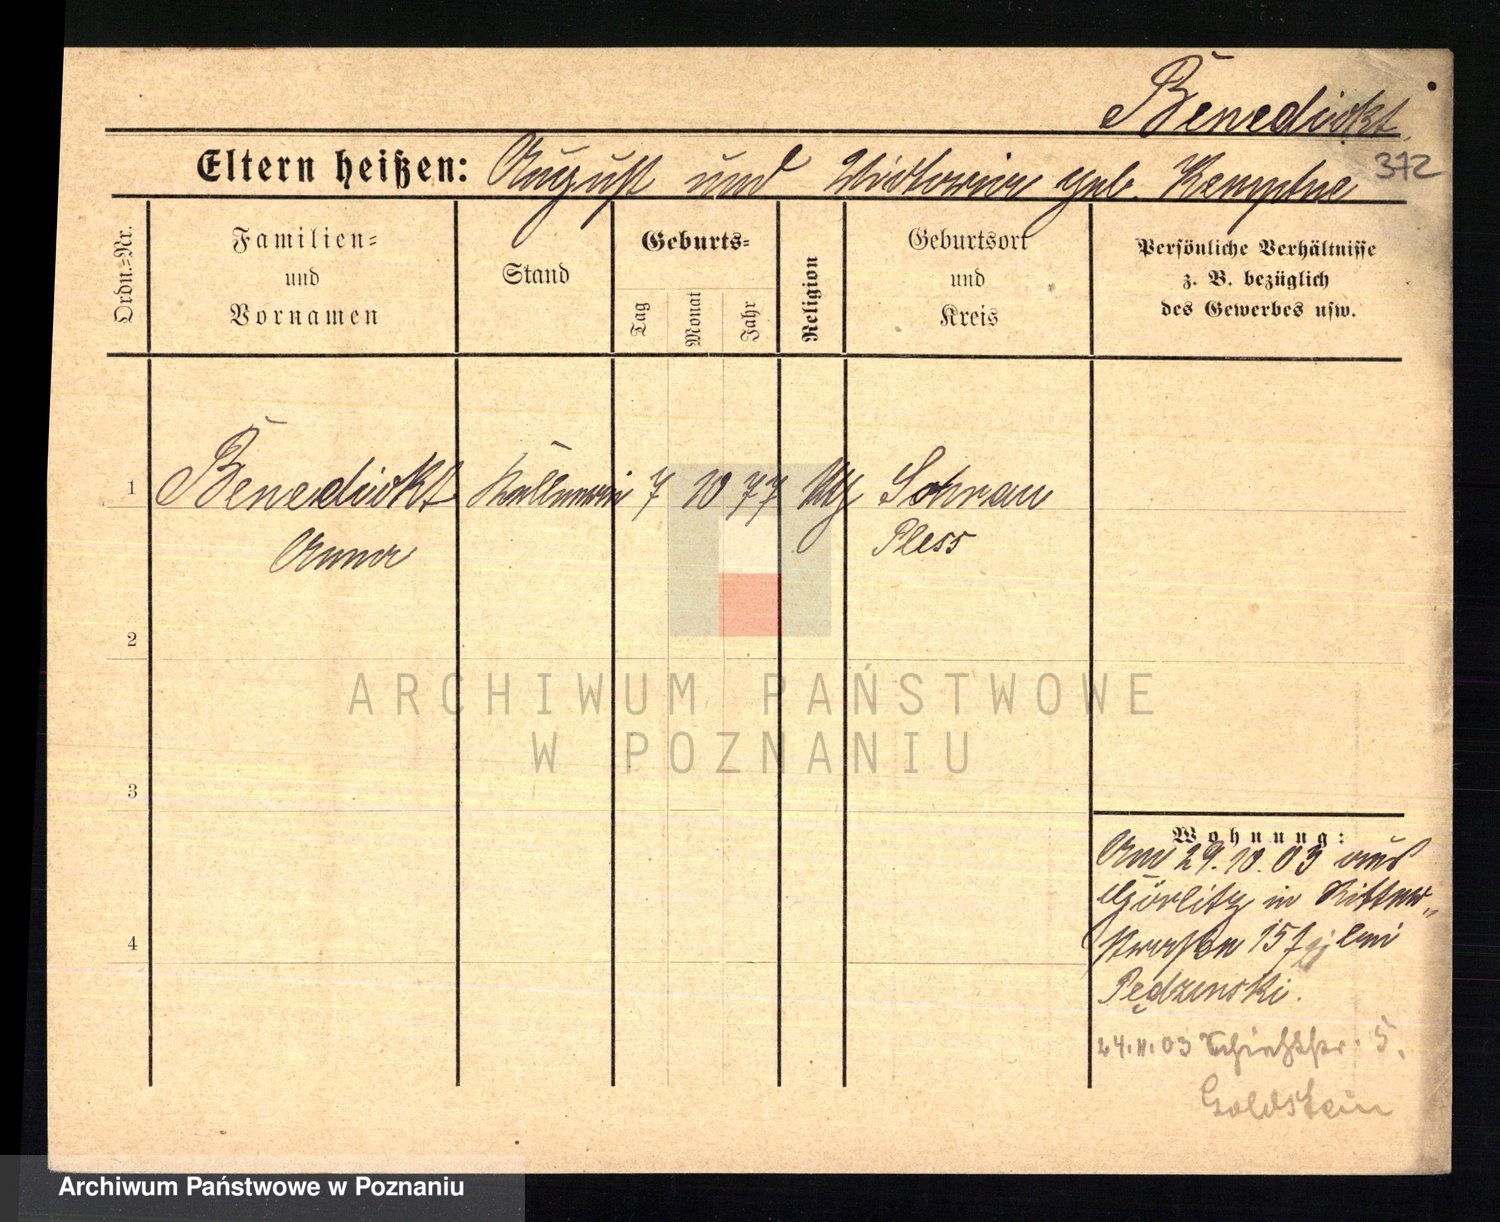 Benedickt
372
Eltern heißen: August und Victoria geb. Kempka
Ordn.-Nr.
Familien-
und
Vornamen
Stand
Geburts-
Tag
Monat
Jahr
Religion
Geburtsort
und
Kreis
Persönliche Verhältnisse
z. B. bezüglich
des Gewerbes usw.
1 Benedickt Kellnerin 7 10 77 Sohrau
Anna Pless
2
3
4
Wohnung:
Am 29.10.03 aus
Görlitz in Ritter„
straße 15 bei
Pędzinski.
24.11.03 5.
Goldstein
ARCHIWUM PAŃSTWOWE
W POZNANIU
Archiwum Państwowe w Poznaniu